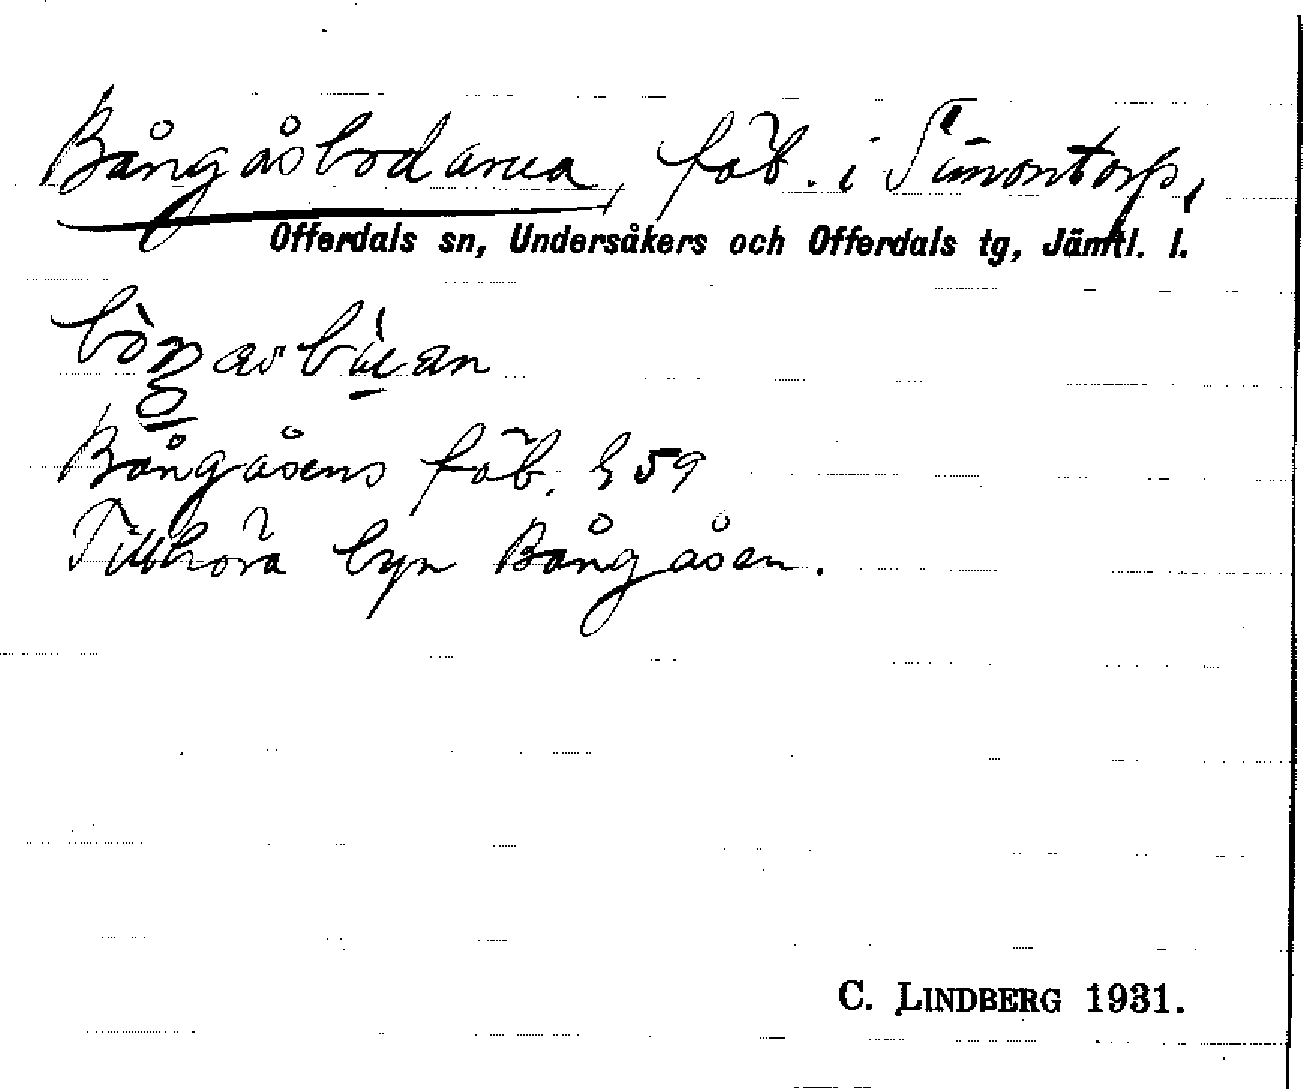 Bångåsbodarna, fäb. i Simontorp,
Offerdals sn, Undersåkers och Offerdals tg, Jämtl. l.
Bångåsens fäb. § 59
Tillhöra byn Bångåsen.
C. LINDBERG 1931.